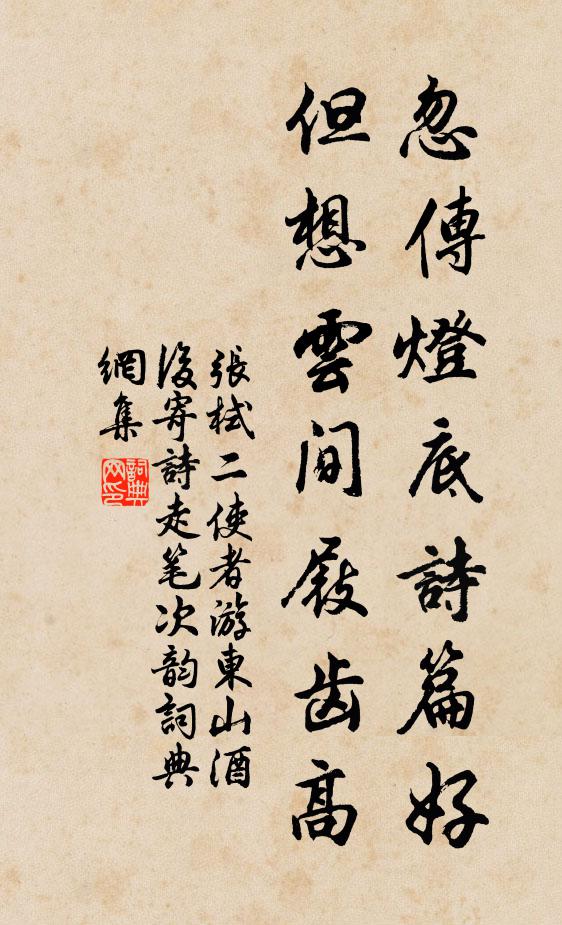 忽傳燈底詩篇好
但想雲间屐齿高
張栻二使者游東山酒
後寄詩走笔次韵詞典
網集
詞典网印